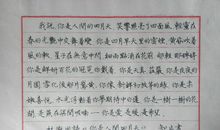 我说你是人间的四月天，笑响点亮了四面风，轻灵在
春的光艳中交舞着变。你是四月早天里的云烟，黄昏吹着
风的软，星子在无意中闪，细雨点洒在花前。那轻，那娉婷
你是，鲜妍百花的冠冕你戴着，你是天真，庄严，你是夜夜的
月圆。雪化后那片鹅黄，你像，新鲜初放芽的绿，你是柔
嫩喜悦，水光浮动着你梦期待中白莲。你是一树一树的花
开，是燕在梁间呢喃，——你是爱，是暖，是希望，